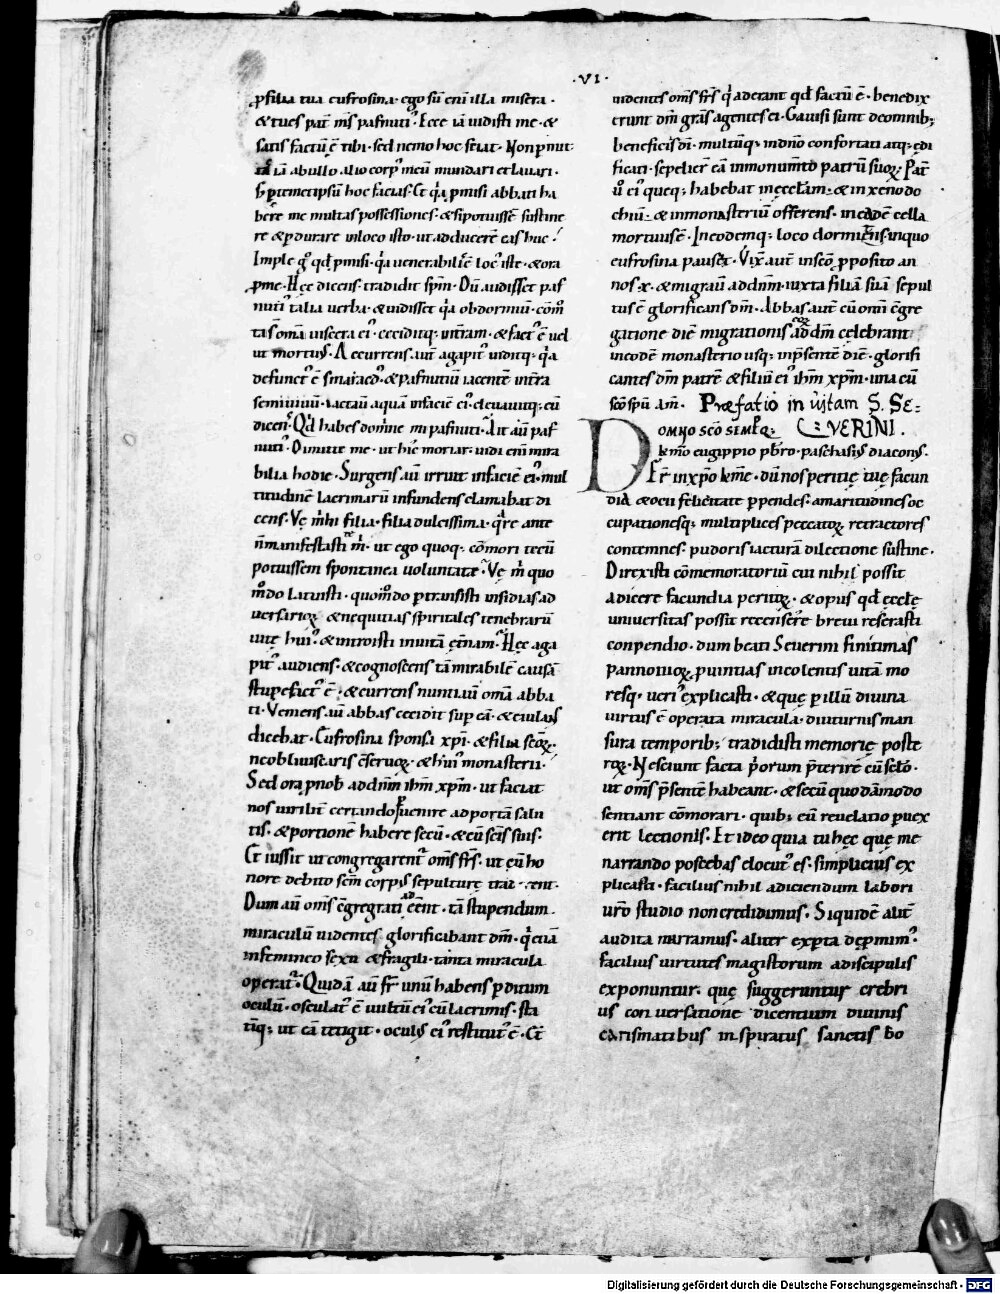 ·VI·
ꝓfilia tua eufrosina· ego sū eni illa misera·
& tu es pat̄ m̄s pafnuti᾿· Ecce iā uidisti me· &
satis factū ē tibi· sed nemo hoc sciat· Non pmit
iā ab ullo alio corp᾿ meū mundari et lauari·
s; ꝑ temetipsū hoc facias· Et q̇a ꝓmisi abbati ha
bere me multas possessiones· & si potuissē sustine
re & ꝑdurare in loco isto· ut adducerē eas huc·
Imple g̊ qd̄ ꝓmisi· q̇a uenerabilis ē loc᾿ iste· & ora
ꝓ me· Hęc dicens· tradidit sp̄m· Dū audisset paf
nuti᾿ talia uerba· & uidisset q̇a obdormiuit· com̄
ta s̄ om̄a uiscera ei᾿· ceciditq; in t̄ram· & fact᾿ ē uel
ut mortuus· Accurrens aut̄ agapit᾿ uiditq; q̇a
defunct᾿ ē smaragd᾿· & pafnutiū iacentē in t̄ra
semiuiuū· iactauit aquā in faciē ei᾿· eleuauitq; eū
dicen᾿· Qd̄ habes domine mi pafnuti᾿· Ait aut̄ paf
nuti᾿· Dimitte me· ut hic moriar· uidi eni mira
bilia hodie· Surgens aut̄ irruit in faciē ei᾿· mul
titudinē lacrimarū infundens clamabat di
cens· Ve m̄hi filia· filia dulcissima· q̄re ante
n̄ manifestasti te m̄· ut ego quoq; cōmori tecū
potuissem spontanea uoluntate· Ve m̄ quo
m̊do latuisti· quom̊do ꝑtransisti insidias ad
uersarioꝝ & nequitias spiritales tenebrarū
uitę hui᾿· & introisti in uitā ęt̄nam· Hęc aga
pit᾿ audiens· & cognoscens tā mirabilē causā
stupefact᾿ ē· & currens nuntiauit om̄a abba
ti· Veniens aut̄ abbas cecidit sup eā· & eiulans
dicebat· Eufrosina sponsa xp̄i· & filia sc̄oꝝ·
ne obliuiscaris c̄seruoꝝ· & hui᾿ monasterii·
Sed ora ꝓ nob̄ ad dn̄m ih̄m xp̄m· ut faciat
nos uirilit̄ certando ꝑuenire ad portā salu
tis· & portionē habere secū· & cū sc̄is suis·
Et iussit ut congregarent᾿ om̄s fr̄s· ut cū ho
nore debito sc̄m corpus sepulturę traderent·
Dum aut̄ om̄s c̄gregati eēnt· tā stupendum
miraculū uidentes glorificabant dm̄· q̇ etiā
in femineo sexu & fragili· tanta miracula
operat᾿· Quidā aut̄ fr̄ unū habens ꝑditum
oculū· osculat᾿ ē uultū ei᾿ cū lacrimis· sta
tiq; ut eā tetigit· oculus ei᾿ restitut᾿ ē· Et
uidentes om̄s fr̄s q̇ aderant qd̄ factū ē· benedix
erunt dm̄ gr̄as agentes ei· Gauisi sunt de omnib;
beneficiis dī· multūq; in dn̄o confortati atq; edi
ficati· sepelier̄ eā in monumento patrū suoꝝ· Pat̄
ū ei᾿ queq; habebat in ęcclam· & in xenodo
chiū· & in monasteriū offerens· in eadē cella
mortuus ē· In eodemq; loco dormiens· in quo
eufrosina pauset· Vix̄ aut̄ in sc̄o ꝓposito an
nos ·x· & migrauit ad dn̄m· iuxta filiā suā sepul
tus ē glorificans dm̄· Abbas aut̄ cū omni c̄gre
gatione diē migrationis eoꝝ ad dm̄ celebrant
in eodē monasterio usq; in p̄sentē diē· glorifi
cantes dm̄ patrē & filiū ei᾿ ih̄m xp̄m· una cū
sc̄o sp̄u am̄· Præfatio in vitam S. SE=
VERINI.
DOMNO SCO SEMPq;
kmo eugippio pb̄ro· paschasius diaconus·
Fr̄ in xp̄o kme· dū nos peritię tuę facun
dia & ocii felicitate ꝑpendes· amaritudines oc
cupationesq; multiplices peccatoꝝ retractores
contemnes· pudoris iacturā dilectione sustine·
Direxisti cōmemoratoriū cui nihil possit
adicere facundia peritoꝝ· & opus qd̄ ecclę
uniuersitas possit recensere breui reserasti
conpendio· dum beati Seuerini finitimas
pannonioꝝ ꝓuintias incolentis uitā mo
resq; ueri᾿ explicasti· & quę ꝑ illū diuina
uirtus ē operata miracula· diuturnis man
sura temporib; tradidisti memorię poste
roꝝ· Nesciunt facta p̄borum p̄terire cū sc̄lo·
ut om̄s p̄sentē habeant· & secū quodāmodo
sentiant cōmorari· quib; eū reuelatio puex
erit lectionis· Et ideo quia tu hęc quę me
narrando poscebas elocut᾿ es· simplicius ex
plicasti· facilius nihil adiciendum labori
uro studio non credidimus· Siquidē alit̄
audita narramus· aliter exꝑta depmim᾿·
facilius uirtutes magistorum a discipulis
exponuntur· quę suggeruntur crebri
us conuersatione dicentium diuinis
carismatibus inspiratus sanctis bo
Digitalisierung gefördert durch die Deutsche Forschungsgemeinschaft · DFG